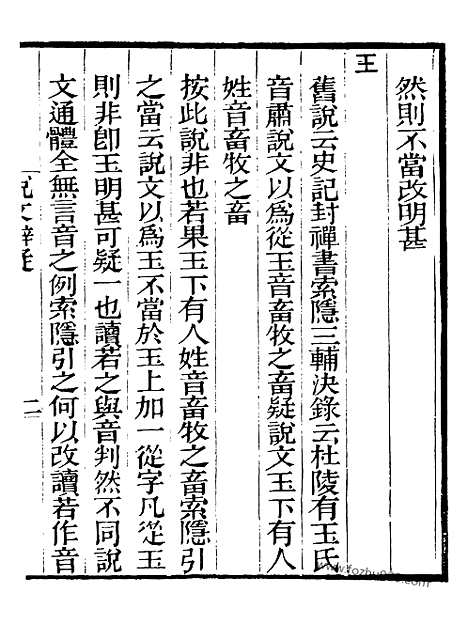 然則不當改明甚
王
舊說云史記封禪書索隱三輔決錄云杜陵有玉氏
音肅說文以為從王音畜牧之畜疑說文玉下有人
姓音畜牧之畜
按此說非也若果玉下有人姓音畜牧之畜索隱引
之當云說文以為玉不當於玉上加一從字凡從玉
則非卽玉明甚可疑一也讀若之與音判然不同說
文通體全無言音之例索隱引之何以改讀若作音
說文辨疑
二